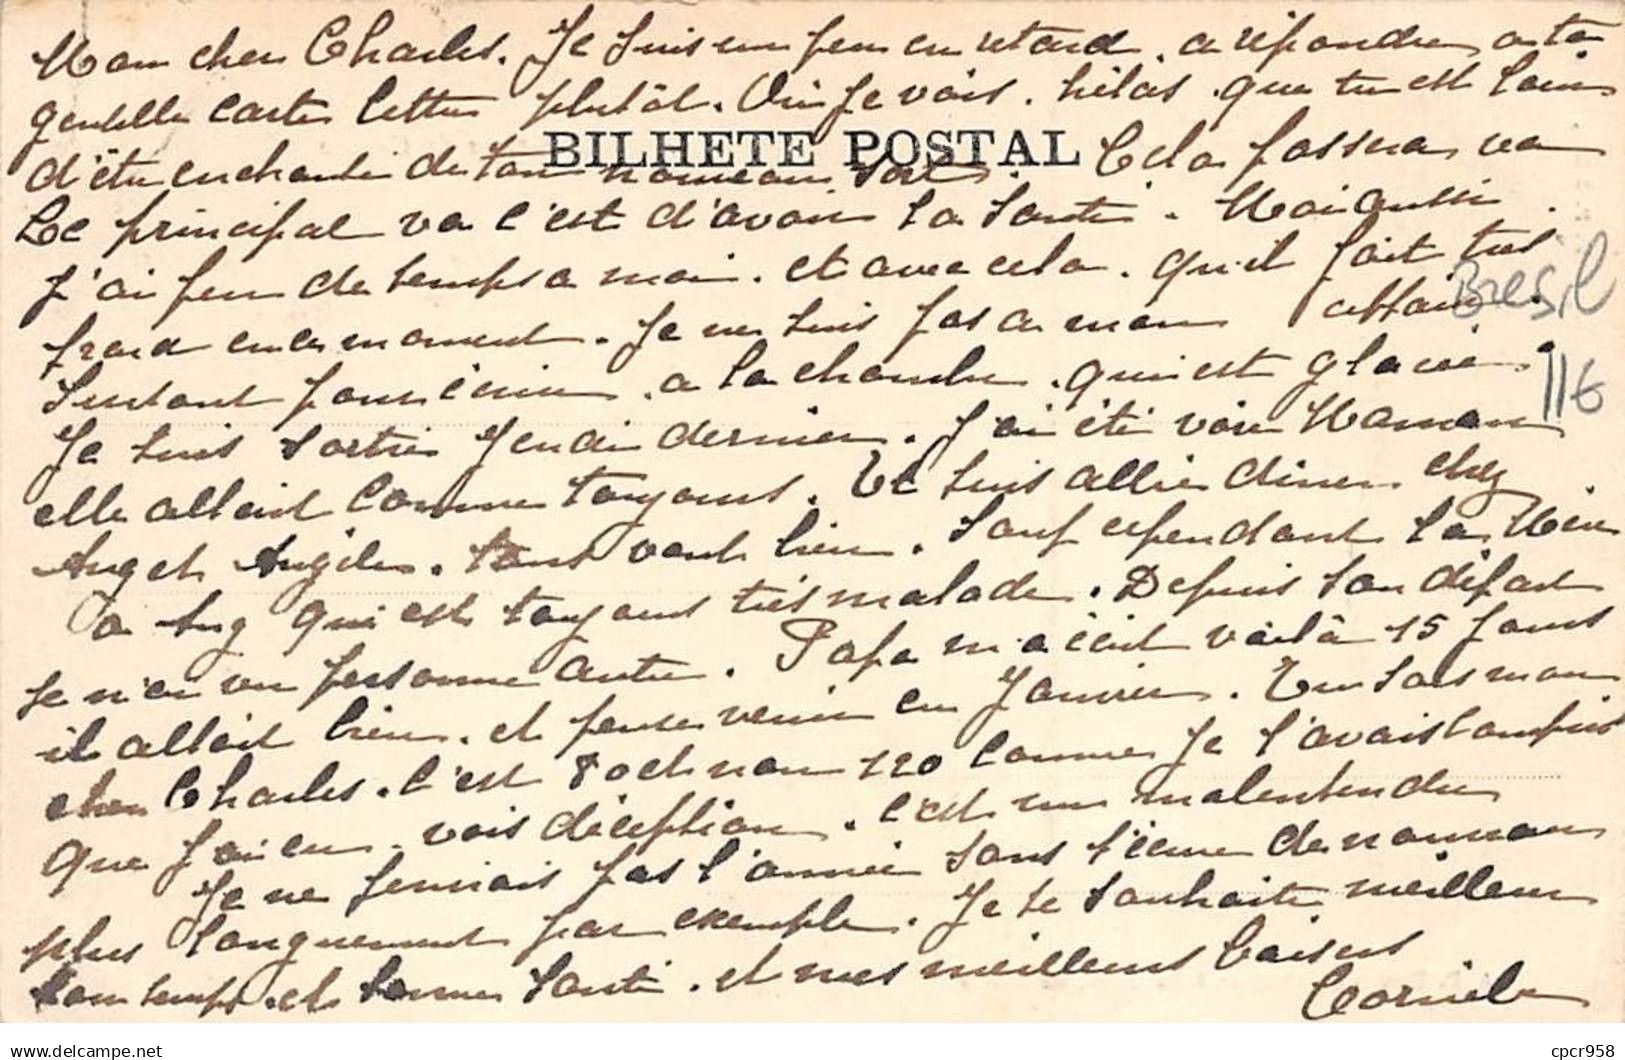 Mon cher Charles. Je suis un peu en retard. a répondre a ta
gentille carte lettre plutôt. Oui je vois. hélas. que tu est loin
BILHETE POSTAL
d'être enchanté de ton nouveau sort. Cela passera va
Le principal va c'est d'avoir la santé. Moi aussi
j'ai peu de temps a moi. et avec cela. qu'il fait très
Bresil
froid en ce moment. Je ne suis pas a mon affaire.
surtout pour écrire. a la chambre. qui est glacée.
11€
Je suis sortie jeudi dernier. J'ai été voir Maman
elle allait comme toujours. Et suis allée diner chez
Ang et Angèle. tout vont bien. Sauf cependant la Mère
a Ang qui est toujours très malade. Depuis ton départ
je n'ai vu personne autre. Papa m'a écrit voilà 15 jours
il allait bien. et pense venir en Janvier. Tu sais mon
cher Charles. c'est 80 et non 120 comme je l'avais compris
que j'ai eu. vois déception. c'est un malentendu
Je ne finirais pas l'année sans t'écrire de nouveau
plus longuement par exemple. Je te souhaite meilleur
ton temps. et bonne santé. et mes meilleurs baisers
cpcr958